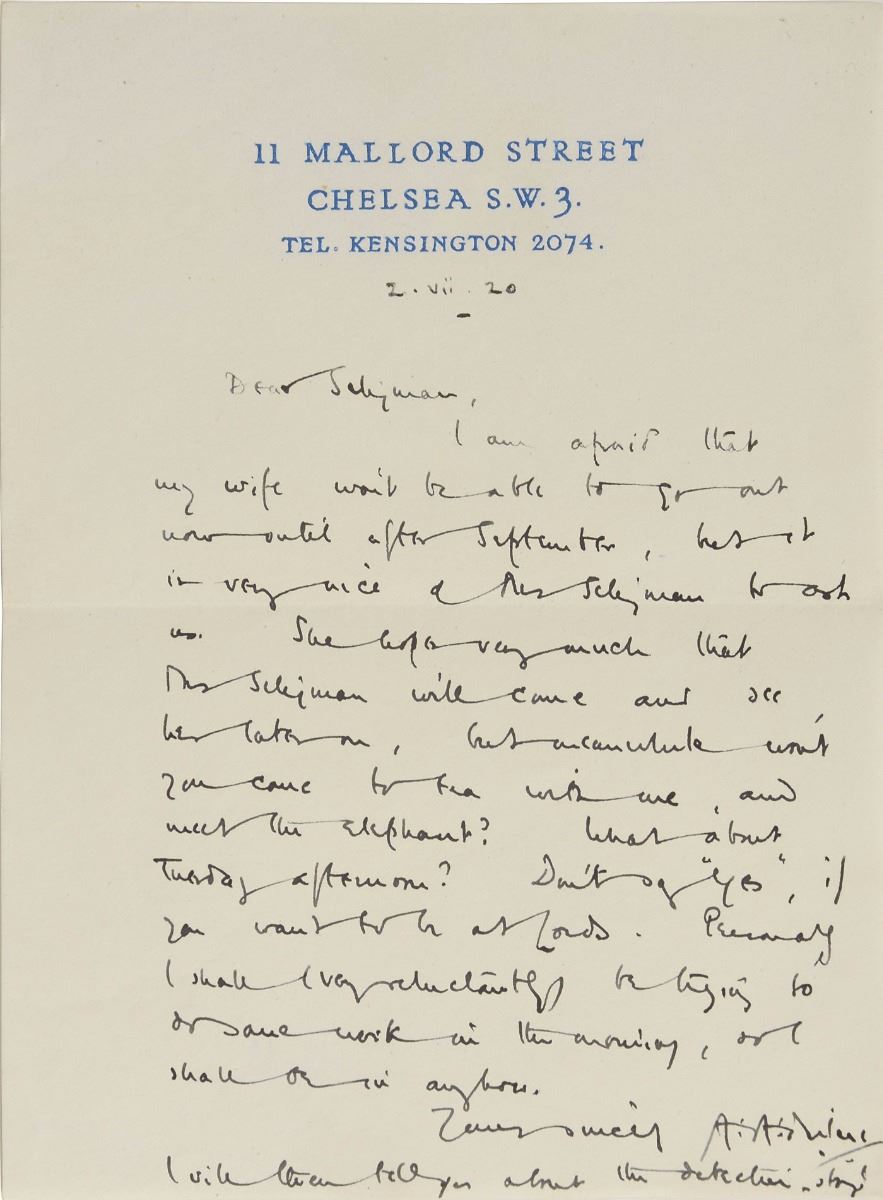 11 MALLORD STREET
CHELSEA S.W.3.
TEL. KENSINGTON 2074.
2. vii. 20
Dear Seligman,
I am afraid that
my wife won't be able to go out
now until after September, but it
is very nice of Mrs Seligman to ask
us. She hopes very much that
Mrs Seligman will come and see
her later on, but meanwhile won't
you come to tea with me, and
meet the elephant? What about
Tuesday afternoon? Don't say "Yes", if
you want to be at Lords. Personally
I shall (very reluctantly) be trying to
do some work in the morning, so I
shall be in anyhow.
Yours sincerely A.A. Milne
I will then tell you about the detective story